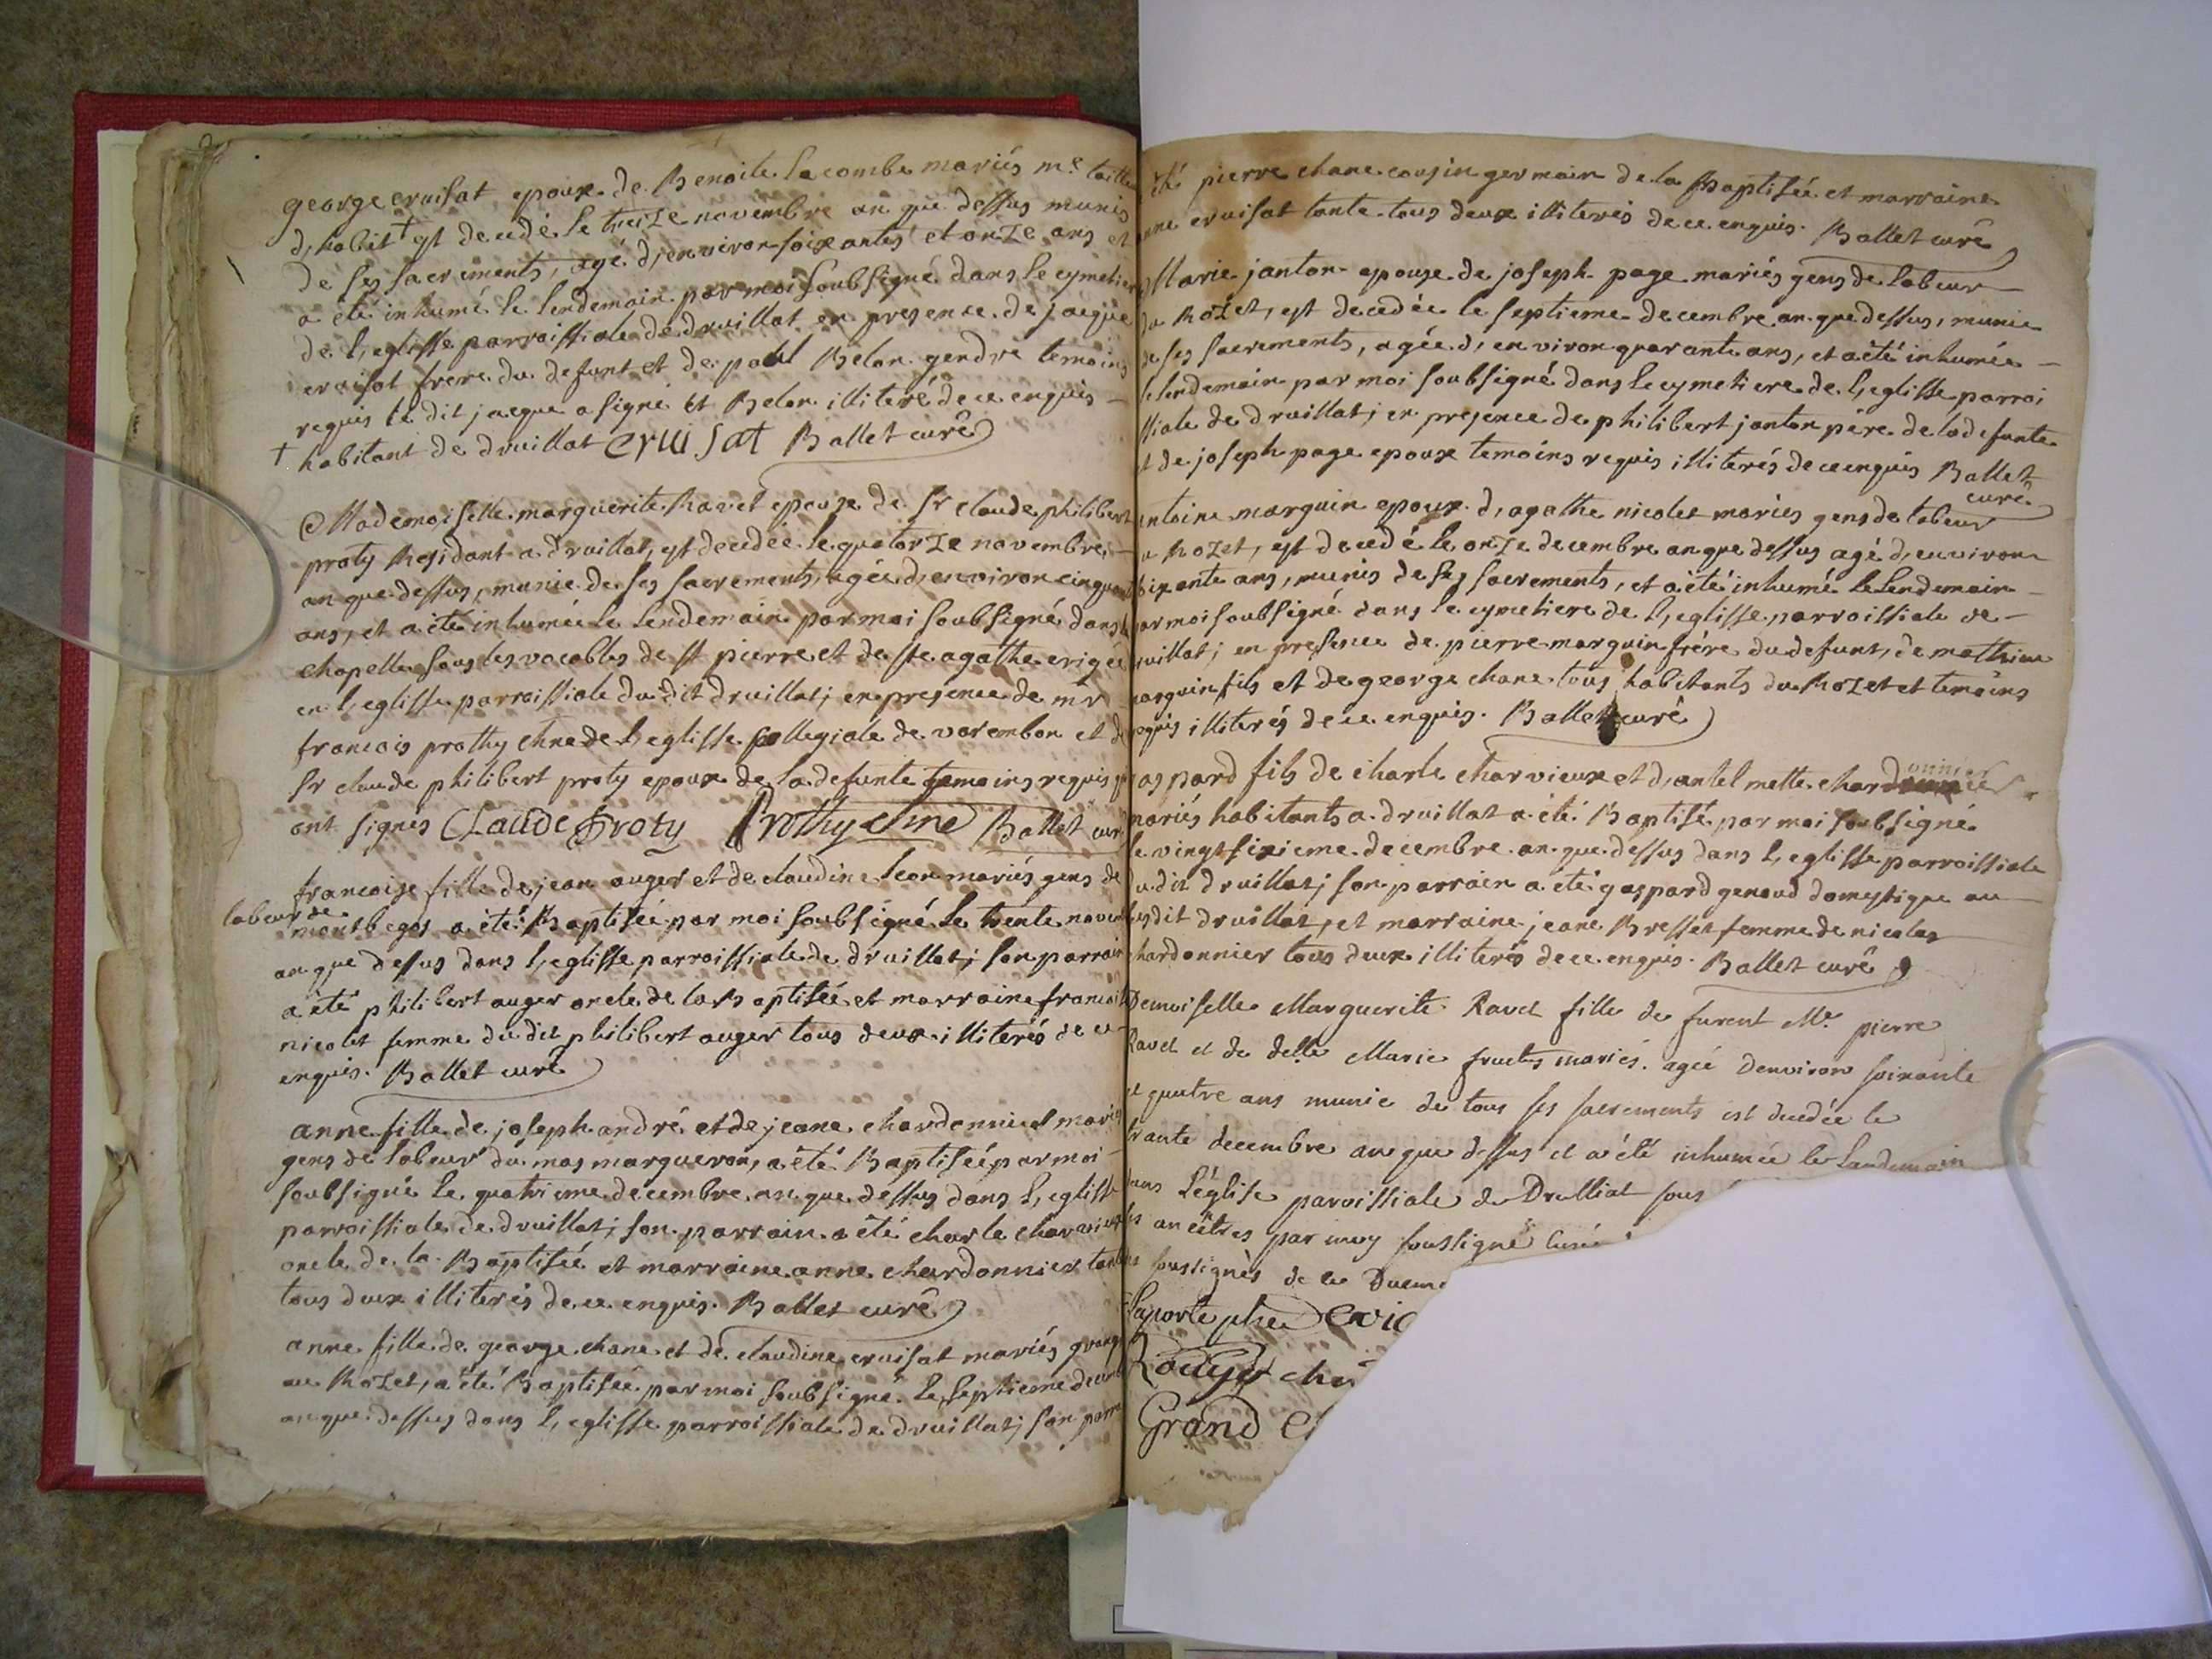 george cruisat epoux de Benoite lacombe mariés me taille
d,habit † est decedé le treize novembre an que dessus munis
de ses sacrements, agé d,environ soixantes et onze ans et
a été inhumé le lendemain par moi soubsigné dans le cymetiere
de l,eglisse parroissiale de druillat en presence de jacque
cruisat frere du defunt et de paul Belon gendre temoins
requis le dit jacque a signé et Belon illiteré de ce enquis
† habitant de druillat cruisat Ballet curé
Mademoiselle marguerite Ravet epouse de sr claude philibert
proty Residant a druillat, est decedée le quatorze novembre
an que dessus, munie de ses sacrements, agée d,environ cinquant
ans, et a été inhumée le lendemain par moi soubsigné dans la
chapelle sous les vocables de st pierre et de ste agathe erigée
en l,eglisse parroissiale du dit druillat; en presence de mr
francois prothy chne de l,eglisse collegiale de varembon et de
sr claude philibert proty epoux de la defunte temoins requis qui
ont signés Claude Proty Prothy chne Ballet curé
francoise fille de jean auger et de claudine leon mariés gens de
labeur de montbegos a été Baptisée par moi soubsigné le trente novem
an que dessus dans l,eglisse parroissiale de druillat; son parrain
a été philibert auger oncle de la Baptisée et marraine francoise
nicolet femme du dit philibert auger tous deux illiterés de ce
enquis. Ballet curé
anne fille de joseph andré et de jeane chardonnier mariés
gens de labeur du mas margueron, a été Baptisée par moi
soubsigné le quatrieme decembre an que dessus dans l,eglisse
parroissiale de druillat; son parrain a été charle charvieux
oncle de la Baptisée et marraine anne chardonnier tante
tous deux illiterés de ce enquis. Ballet curé
anne fille de george chane et de claudine cruisat mariés grang
au Rozet, a été Baptisée par moi soubsigné le septieme decemb
an que dessus dans l,eglisse parroissiale de druillat; son parra
été pierre chane cousin germain de la Baptisée et marraine
anne cruisat tante tous deux illiterés de ce enquis. Ballet curé
Marie janton epouse de joseph page mariés gens de labeur
du Rozet, est decedée le septieme decembre an que dessus, munie
de ses sacrements, agée d,environ quarante ans, et a été inhumée
le lendemain par moi soubsigné dans le cymetiere de l,eglisse parroi
ssiale de druillat; en presence de philibert janton père de la defunte
et de joseph page epoux temoins requis illiterés de ce enquis Ballet
curé
antoine marguin epoux d,agathe nicolet mariés gens de labeur
u Rozet, est decedé le onze decembre an que dessus agé d,environ
soixante ans, munis de ses sacrements, et a été inhumé le lendemain
par moi soubsigné dans le cymetiere de l,eglisse parroissiale de
ruillat; en presence de pierre marguin frère du defunt, de
marguin fils et de george chane tous habitants du Rozet et temoins
requis illiterés de ce enquis. Ballet curé
gaspard fils de charle charvieux et d,antelmette chardonnier
mariés habitants a druillat a été Baptisé par moi soubsigné
le vingt sixieme decembre an que dessus dans l,eglisse parroissiale
du dit druillat; son parrain a été gaspard genoud domestique au
susdit druillat, et marraine jeane Bresset femme de nicolas
chardonnier tous deux illiterés de ce enquis. Ballet curé
Demoiselle Marguerite Ravet fille de furent Me pierre
Ravet et de delle Marie mariés. agée denviron soixante
e quatre ans munie de tous ses sacrements est decedée le
trante decembre an que dessus et a été inhumée le Landemain
dans L'église paroissiale de Drulliat sous
ses ancêtres par moy soussigné Curé
soussignès de ce Duem
Laporte ptre
Rouyer
Grand